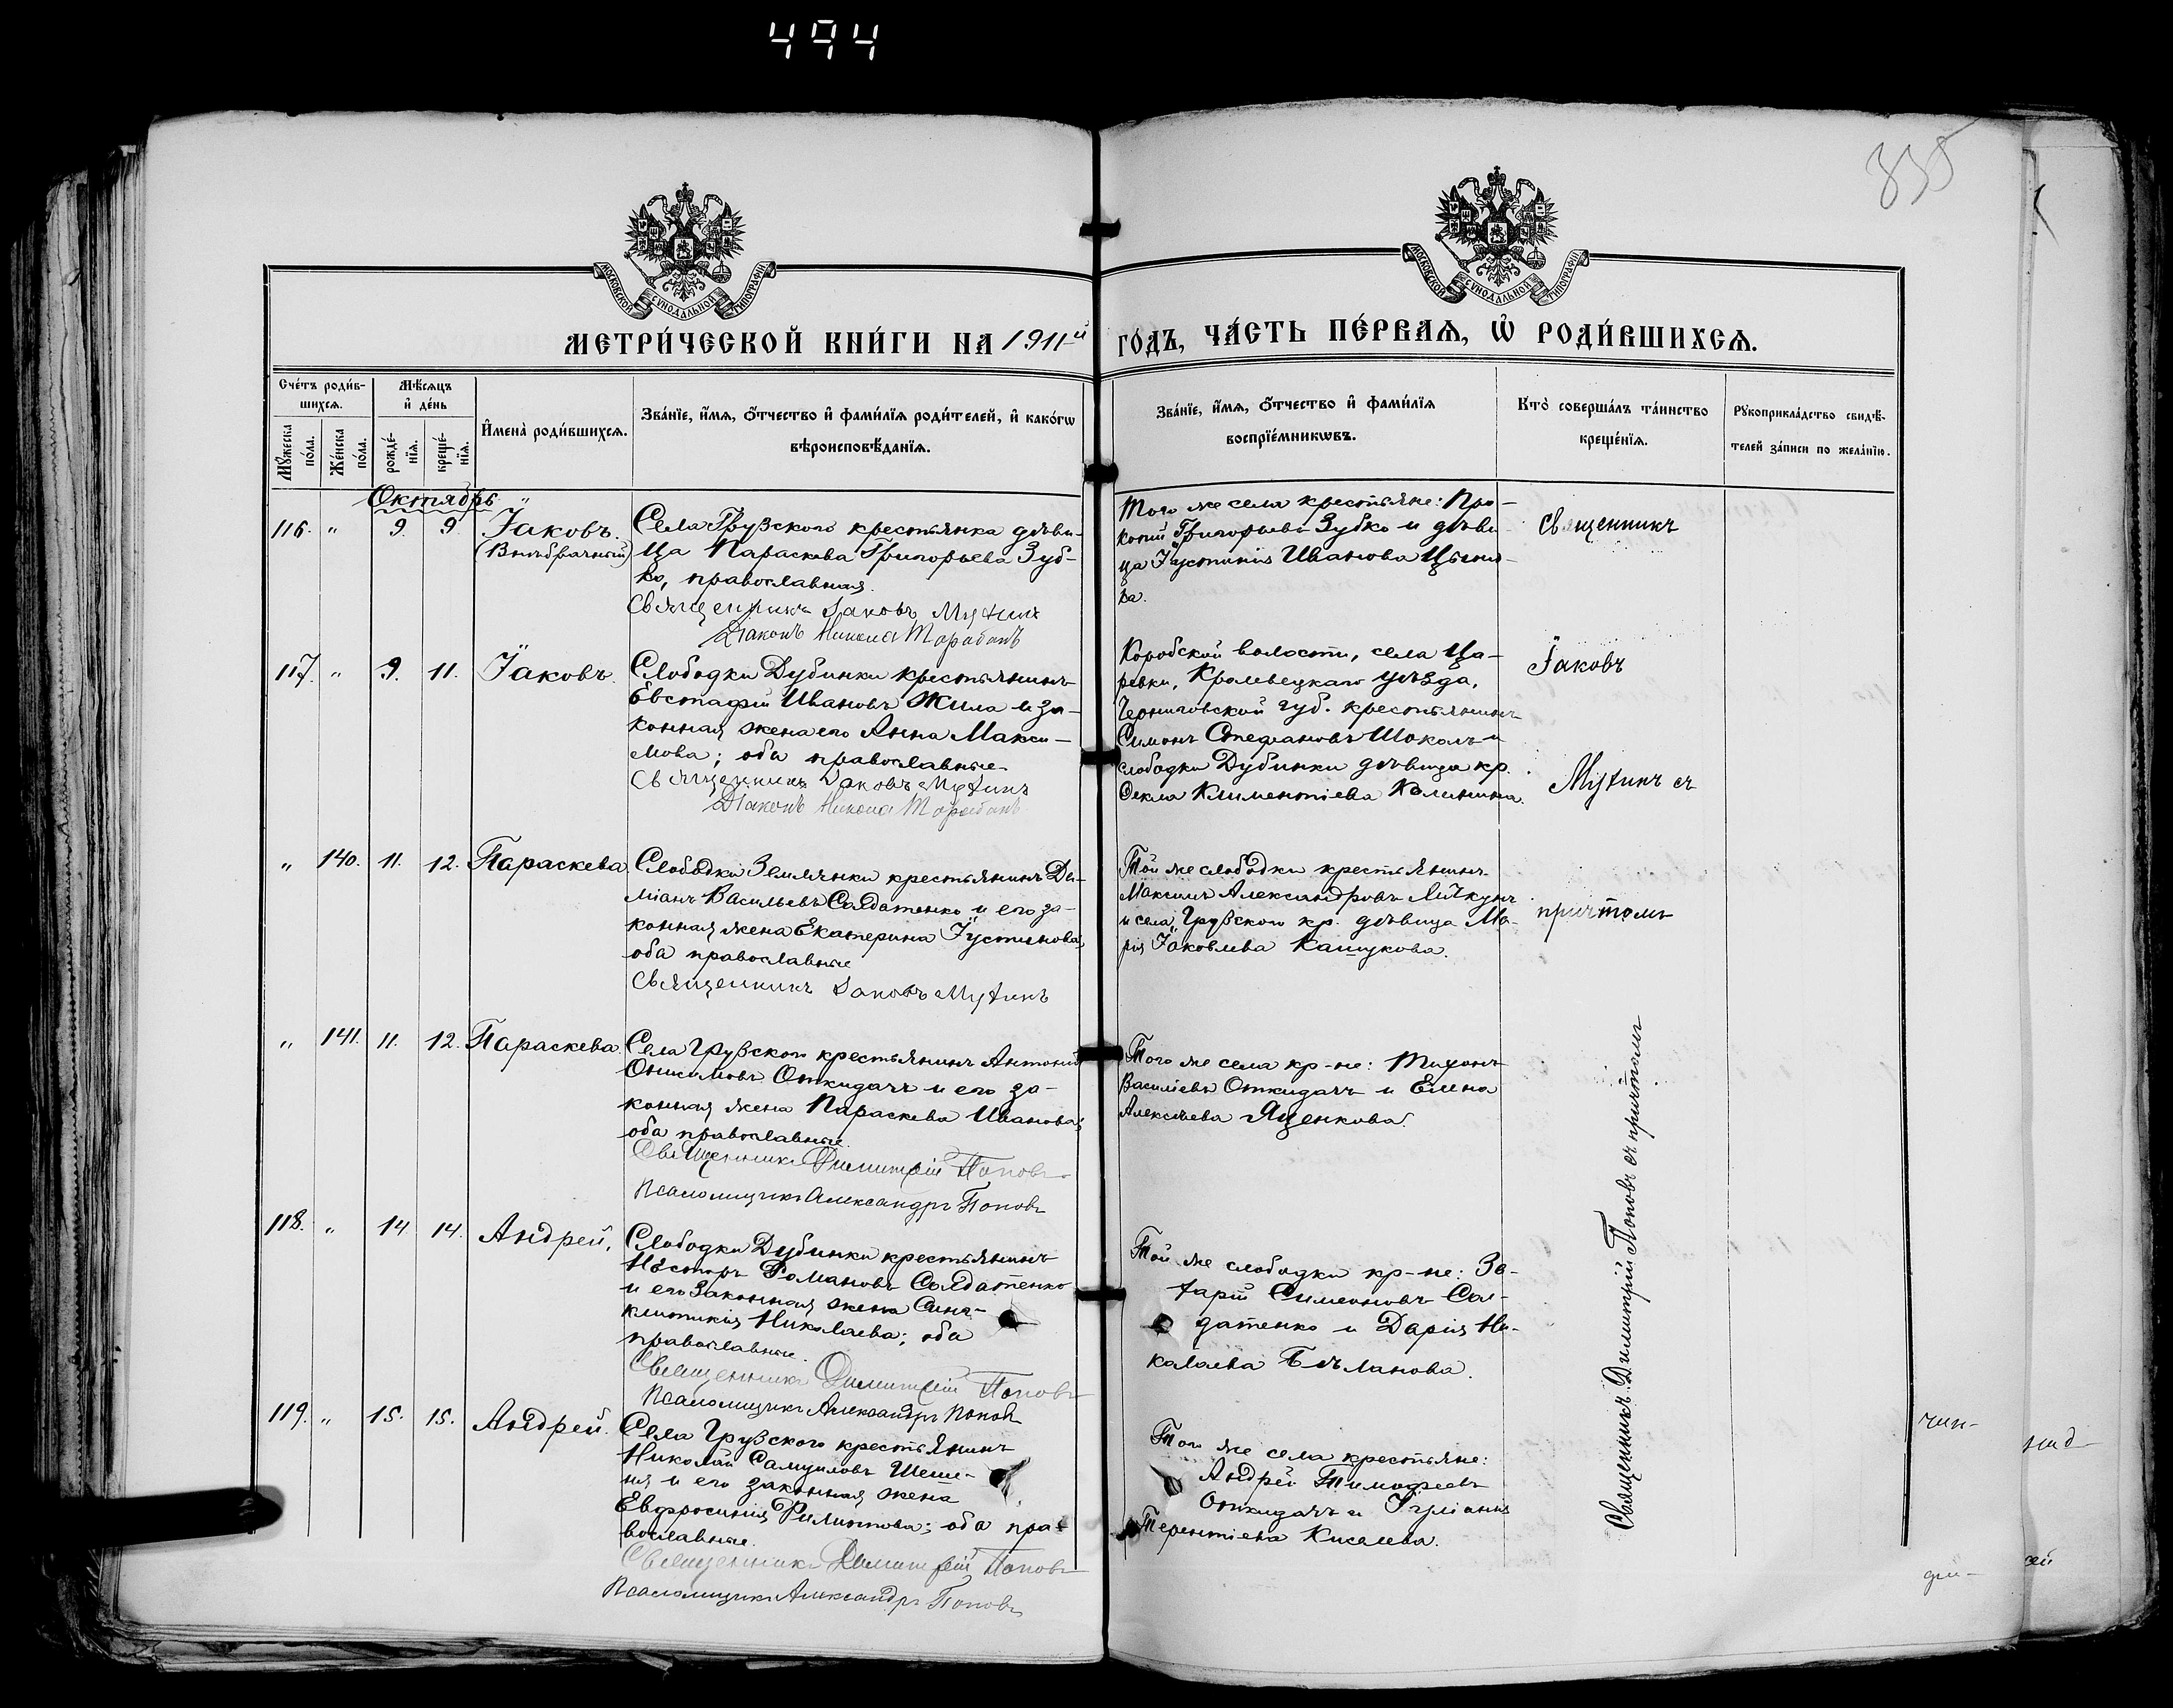 494
335
МОСКОВСКОЙ СѴНОДАЛЬНОЙ ТИПОГРАФІИ
МОСКОВСКОЙ СѴНОДАЛЬНОЙ ТИПОГРАФІИ
МЕТРИ́ЧЕСКОЙ КНИ́ГИ НА 1911-й ГО́ДЪ, ЧА́СТЬ ПЕ́РВАѦ, Ѡ҆ РОДИ́ВШИХСѦ.
Сче́тъ роди́в-
шихсѧ.
Мꙋ́жеска по́ла.
Же́нска по́ла.
Мѣ́сѧцъ и҆ де́нь
рожде́-нїѧ.
креще́-нїѧ.
И҆мена̀ роди́вшихсѧ.
Зва́нїе, и҆́мѧ, ѻ҆́тчество и҆ фами́лїѧ роди́телей, и҆ како́гѡ
вѣроисповѣ́данїѧ.
Зва́нїе, и҆́мѧ, ѻ҆́тчество и҆ фами́лїѧ
воспрїе́мникѡвъ.
Кто̀ соверша́лъ та́инство
креще́нїѧ.
Рꙋкоприкла́дство свидѣ́-
телей за́писи по жела́нїю.
Октябрь
116. " 9. 9. Іаковъ.
(Внѣбрачный)
Села Грузскаго крестьянка дѣви-
ца Параскева Григорьева Зуб-
ко, православная.
Священникъ Іаковъ Мухинъ
Діаконъ Никола Тарабанъ
Того же села крестьяне: Про-
копій Григорьевъ Зубко и дѣви-
ца Іустинія Иванова
ва.
Священникъ
117. " 9. 11. Іаковъ.
Слободки Дубинки крестьянинъ
Евстафій Ивановъ Жила и за-
конная жена его Анна Макси-
мова; оба православные
Священникъ Іаковъ Мухинъ
Діаконъ Никола Тарабанъ
Коробской волости, села Ца-
ревки, Кролевецкаго уѣзда,
Черниговской губ. крестьянинъ
Симонъ Стефановъ Шоколъ и
слободки Дубинки дѣвица кр.
Ѳекла Климентіева Калинина.
Іаковъ
Мухинъ съ
" 140. 11. 12. Параскева
Слободки Землянки крестьянинъ Да-
міанъ Васильевъ Солдатенко и его за-
конная жена Екатерина Іустинова;
оба православные
Священникъ Іаковъ Мухинъ
Той же слободки крестьянинъ
Максимъ Александровъ
и села Грузскаго кр. дѣвица Ма-
рія Іаковлева Кашукова.
причтомъ
" 141. 11. 12. Параскева.
Села Грузскаго крестьянинъ Антоній
Онисимовъ Откидачъ и его за-
конная жена Параскева Иванова;
оба православные.
Священникъ Димитрій Поповъ
Псаломщикъ Александръ Поповъ
Того же села кр-не: Тихонъ
Василіевъ Откидачъ и Елена
Алексѣева Яценкова.
118. " 14. 14. Андрей.
Слободки Дубинки крестьянинъ
Несторъ Романовъ Солдатенко
и его законная жена Син-
клитикія Николаева; оба
православные.
Священникъ Димитрій Поповъ
Псаломщикъ Александръ Поповъ
Той же слободки кр-не: За-
харій Симеоновъ Сол-
датенко и Дарія Ни-
колаева
119. " 15. 15. Андрей.
Села Грузскаго крестьянинъ
Николай Самуиловъ Шеше-
ня и его законная жена
Евфросинія Филиппова; оба пра-
вославные.
Священникъ Димитрій Поповъ
Псаломщикъ Александръ Поповъ
Того же села крестьяне:
Андрей Тимофеевъ
Откидачъ и Іуліанія
Терентіева Киселева.
Священникъ Димитрій Поповъ съ причтомъ